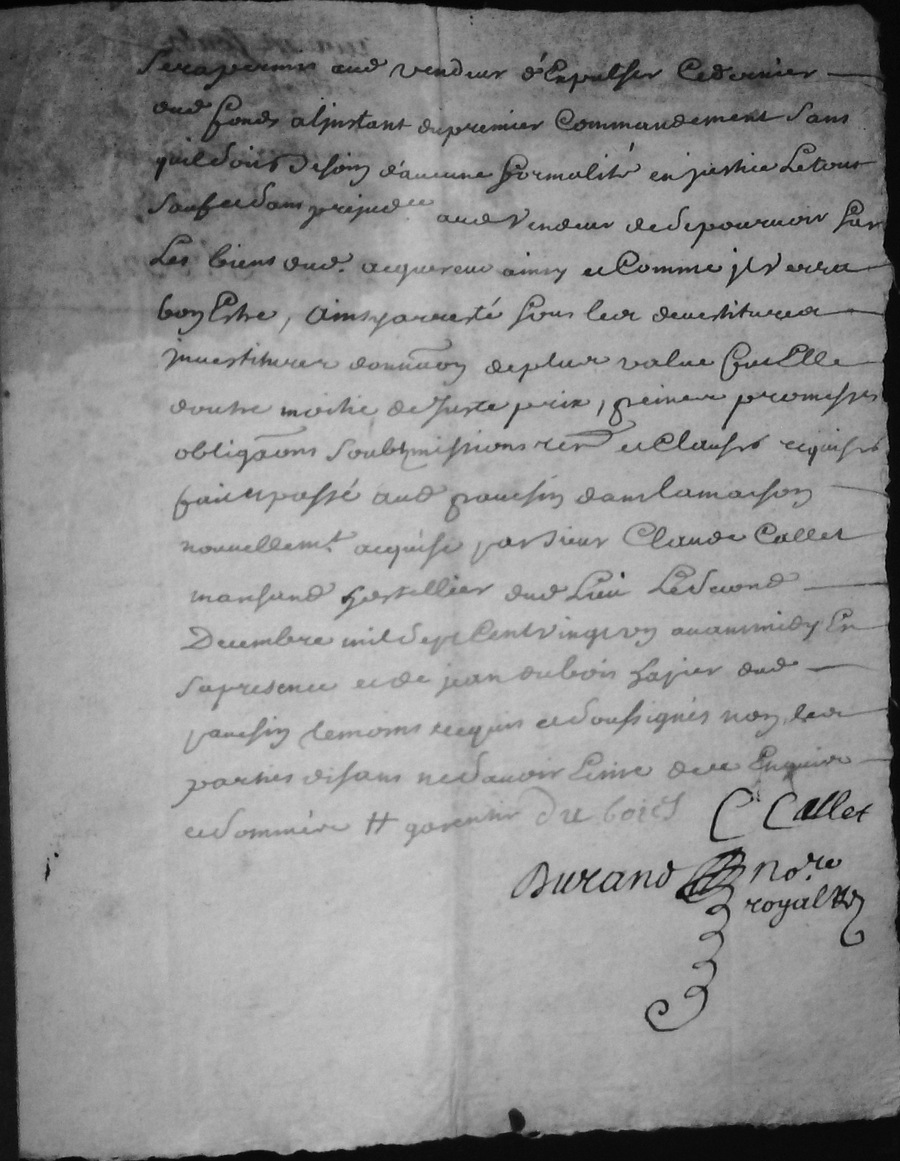 Sera permis aud vendeur d'Expulser Cedernier
dud fonds alinstant dupremier Commandement Sans
quil soit Besoin d'aucune formalité en justice Letout
Sauf et Sans prejud.ce aud Vendeur desepourvoir Sur
Les biens dud. acquereur ainsy et Comme jl verra
bon Estre, Ainsy arresté Sous les devestitures
jnvestitures donnãon deplus value fut Elle
doutre moitié de Juste prix, peines promesses
obligãons Soubzmissions ren et Clauses requises
fait et passé aud pravesin dans lamaison
nouvellem.t acquise par Sieur Claude Callet
marchand hostellier dud Lieu LeSecond
Decembre mil Sept Cent vingt un avant midy En
Sapresence et de jean dubois dud
temoins requis et Soussignés non les
parties disans ne Scavoir Ecrire dece Enquises
et Sommées # du bois C Callet
Durand no.re
royal